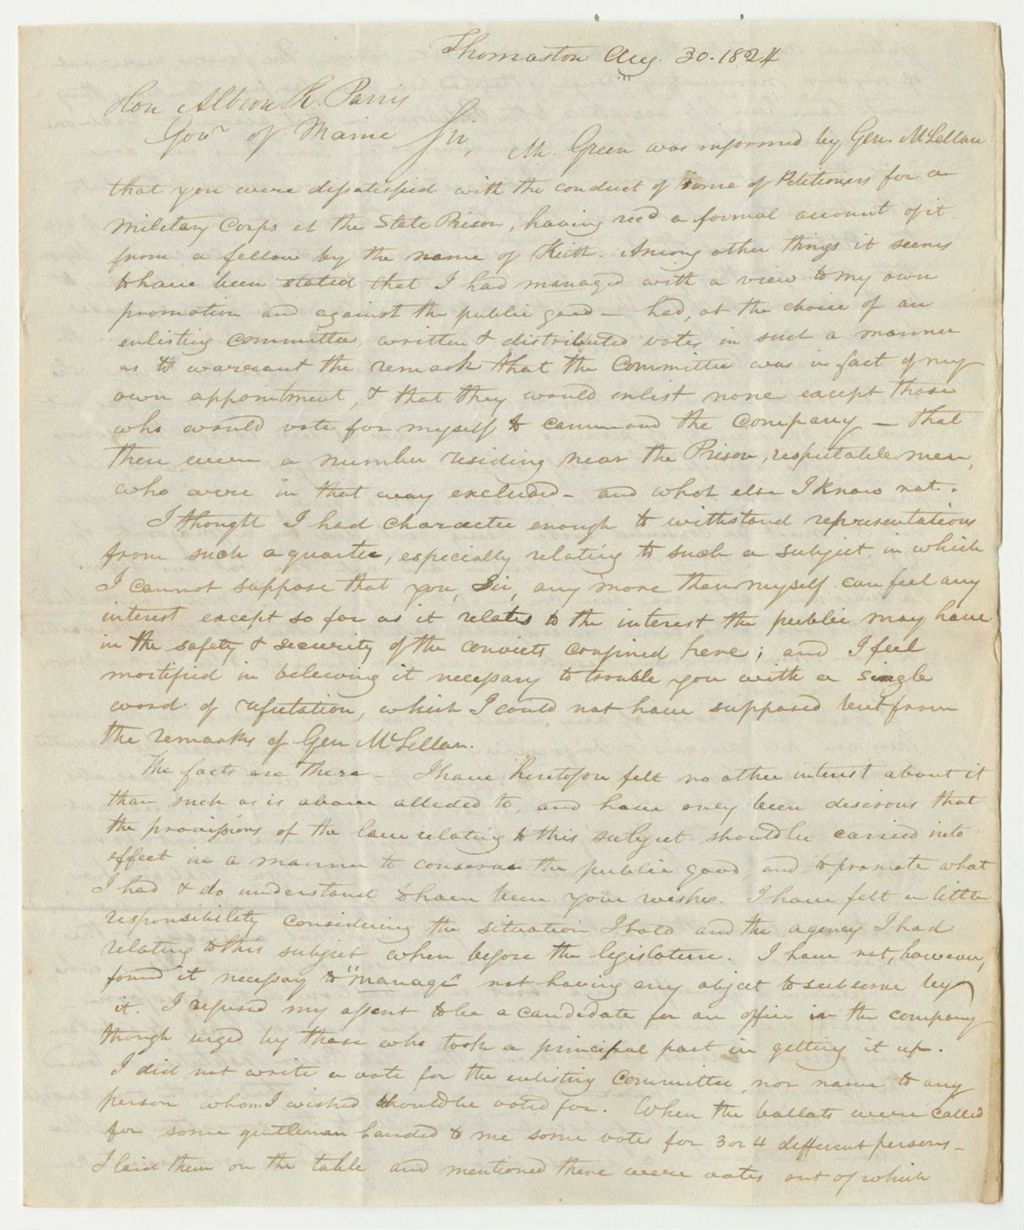 Thomaston Aug. 30. 1824
Hon Albion K. Parris
Govr of Maine Sir,
Mr. Green was informed by Gen. McLellan
that you were dissatisfied with the conduct of some of Petitioners for a
Military Corps at the State Prison, having recd a formal account of it
from a fellow by the name of Keith. Among other things it seems
to have been stated that I had managed with a view to my own
promotion and against the public good — had, at the choice of an
enlisting committee, written & distributed votes in such a manner
as to warrant the remark that the Committee was in fact of my
own appointment, & that they would enlist none except those
who would vote for myself to command the Company — that
there were a number residing near the Prison, respectable men,
who were in that way excluded — and what else I know not.
I thought I had character enough to withstand representations
from such a quarter, especially relating to such a subject, in which
I cannot suppose that you, Sir, any more than myself can feel any
interest except so far as it relates to the interest the public may have
in the safety & security of the convicts confined here; and I feel
mortified in believing it necessary to trouble you with a single
word of refutation, which I could not have supposed but from
the remarks of Gen McLellan.
The facts are these — I have heretofore felt no other interest about it
than such as is above alleded to, and have only been desirous that
the provisions of the law relating to this subject should be carried into
effect in a manner to conserve the public good and to promote what
I had & do understand to have been your wishes. I have felt a little
responsibility considering the situation I hold and the agency I had
relating to this subject when before the legislature. I have not, however,
found it necessary to "manage" not having any object to subserve by
it. I refused my assent to be a candidate for an office in the company
though urged by those who took a principal part in getting it up.
I did not write a vote for the enlisting Committee nor name to any
person whom I wished should be voted for. When the ballots were called
for some gentleman handed to me some votes for 3 or 4 different persons —
I laid them on the table and mentioned there were votes out of which